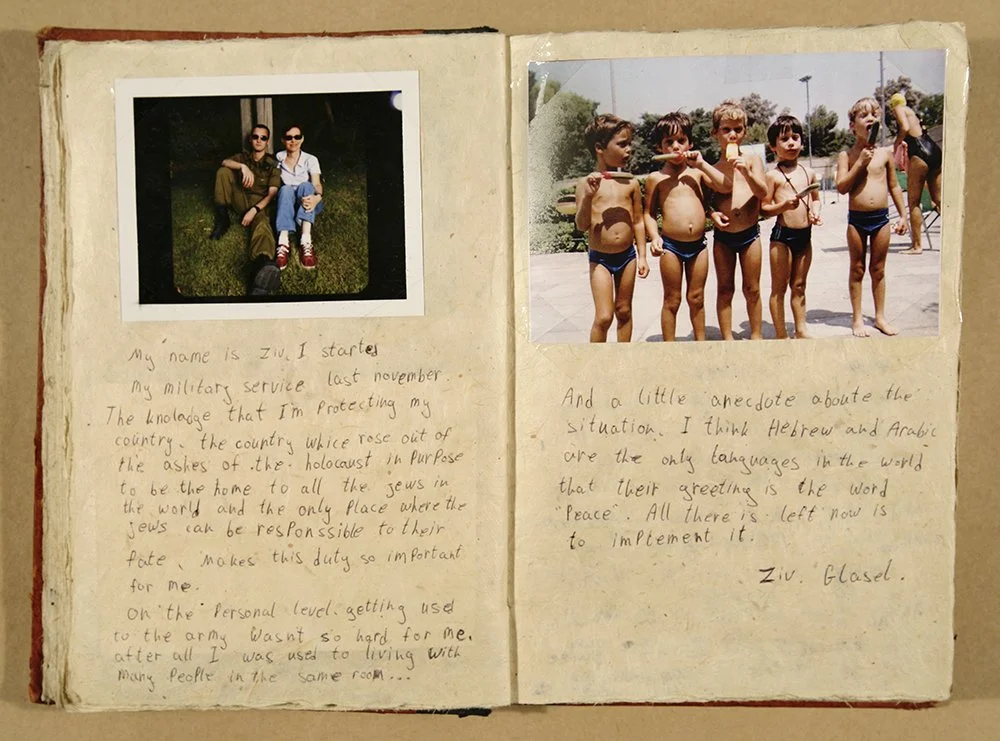 My name is Ziv. I started
my military service last november.
The knoladge that I'm Protecting my
country. the country whice rose out of
the ashes of the holocaust in PurPose
to be the home to all the jews in
the world and the only Place where the
jews can be resPonssible to their
fate, makes this duty so important
for me.
On the Personal level. getting used
to the army Wasnt so hard for me.
after all I was used to living with
many People in the same room...
And a little anecdote aboute the
situation. I think Hebrew and Arabic
are the only languages in the world
that their greeting is the word
"Peace". All there is left now is
to implement it.
Ziv. Glasel.